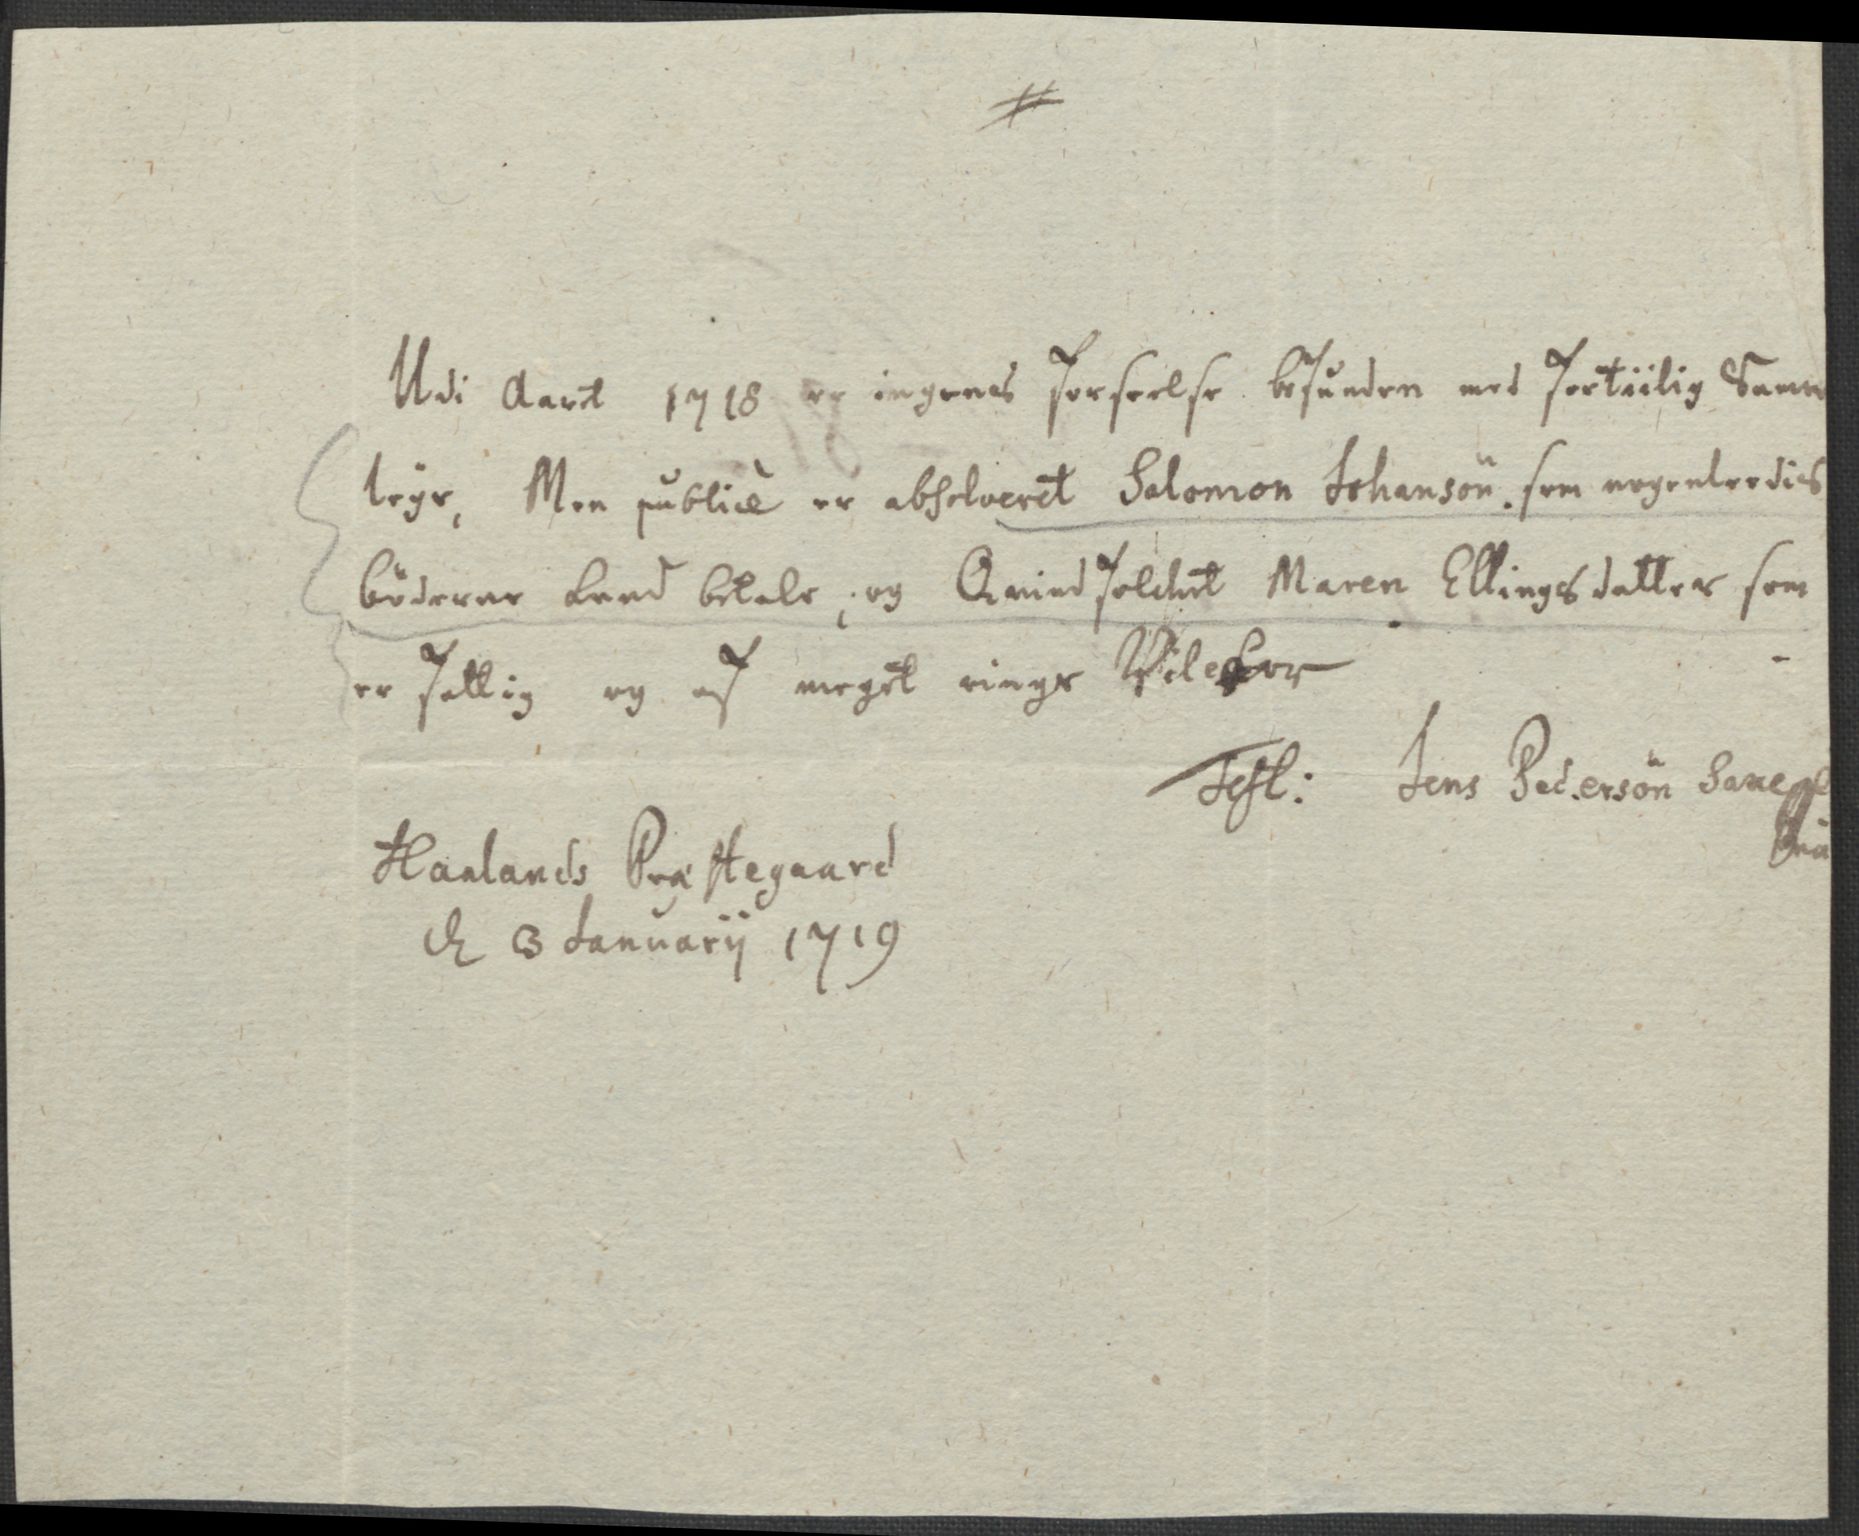 #
Udi Aaret 1718 er ingens forseelse befunden med fortiilig Samm
leye, Men publicè er absolveret Salomon Johansön som
böderne kand betale, og Qvindfolchet Maren Ellingsdatter som
er fattig og af meget ringe Vilckor
Test: Jens Pedersön
Haalands Præstegaard
d 3 Januarij 1719